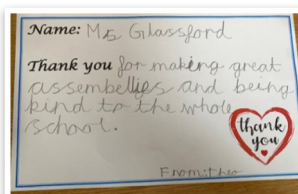 Name: Ms Glassford
Thank you for making great
assembellies and being
kind to the whole
school.
thank
you
From: theo